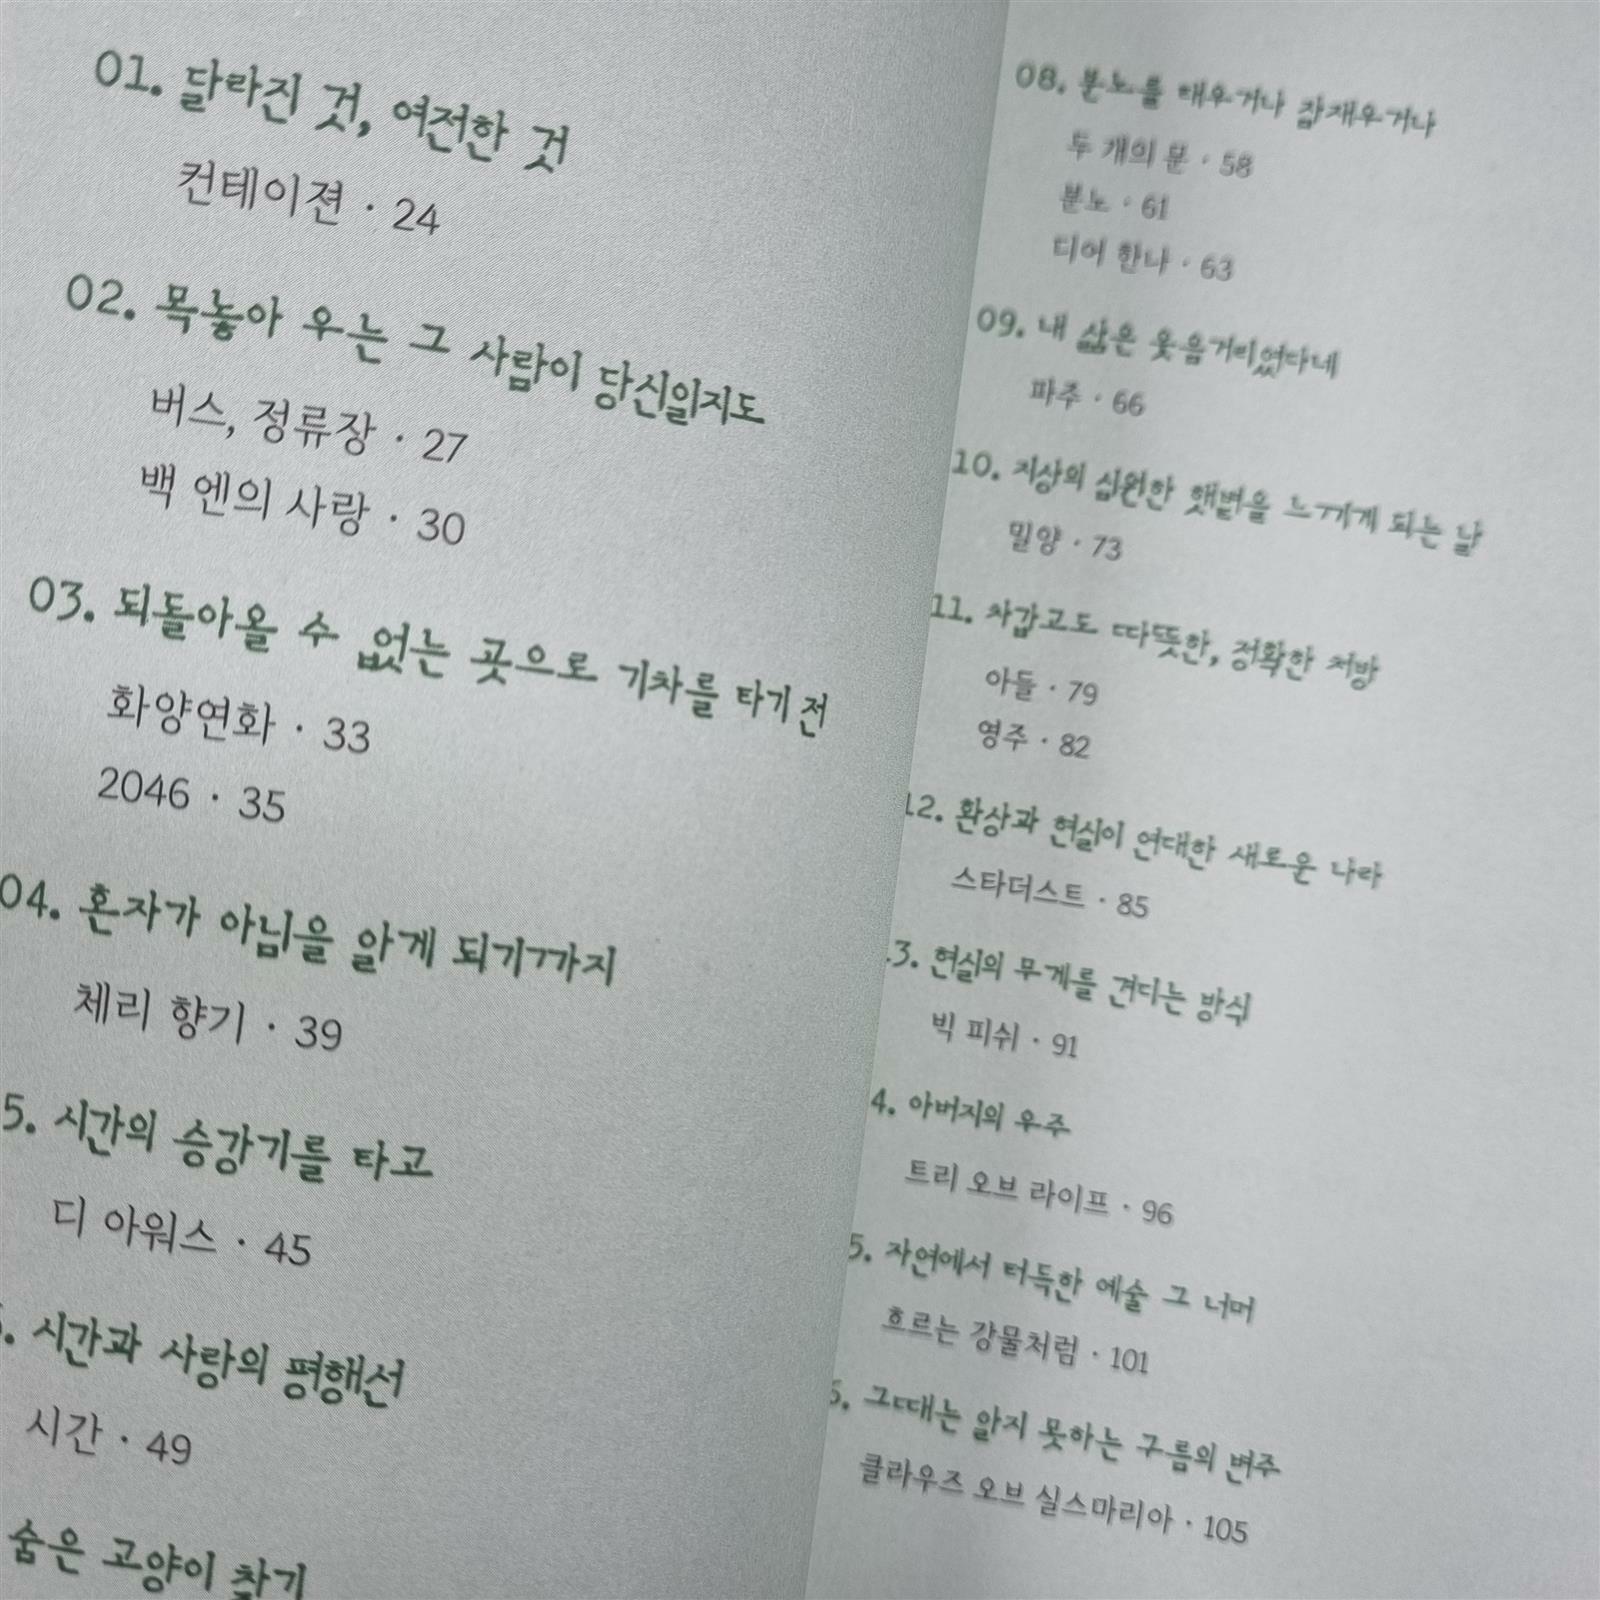 01. 달라진 것, 여전한 것
컨테이젼 · 24
02. 목놓아 우는 그 사람이 당신일지도
버스, 정류장 · 27
백 엔의 사랑 · 30
03. 되돌아올 수 없는 곳으로 기차를 타기 전
화양연화 · 33
2046 · 35
04. 혼자가 아님을 알게 되기까지
체리 향기 · 39
5. 시간의 승강기를 타고
디 아워스 · 45
. 시간과 사랑의 평행선
시간 · 49
숨은 고양이 찾기
08. 분노를 태우거나 잠재우거나
두 개의 문 · 58
분노 · 61
디어 한나 · 63
09. 내 삶은 웃음거리였다네
파주 · 66
10. 지상의 심원한 햇볕을 느끼게 되는 날
밀양 · 73
11. 차갑고도 따뜻한, 정확한 처방
아들 · 79
영주 · 82
12. 환상과 현실이 연대한 새로운 나라
스타더스트 · 85
3. 현실의 무게를 견디는 방식
빅 피쉬 · 91
4. 아버지의 우주
트리 오브 라이프 · 96
5. 자연에서 터득한 예술 그 너머
흐르는 강물처럼 · 101
6. 그때는 알지 못하는 구름의 변주
클라우즈 오브 실스마리아 · 105